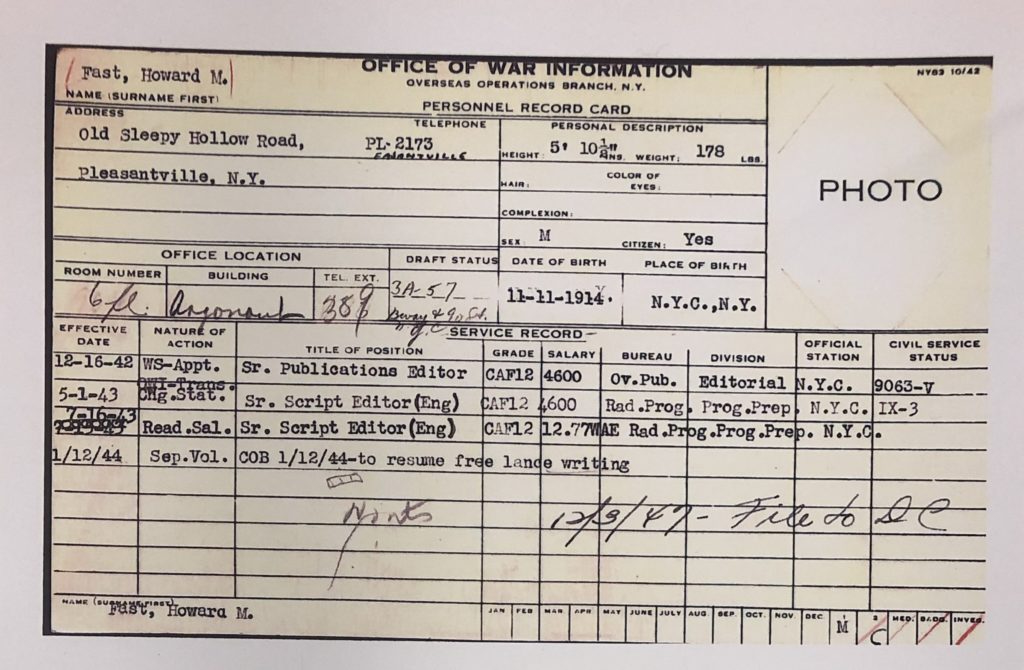 Fast, Howard M.
NAME (SURNAME FIRST)
OFFICE OF WAR INFORMATION
OVERSEAS OPERATIONS BRANCH, N.Y.
PERSONNEL RECORD CARD
NY63 10/42
ADDRESS
TELEPHONE
PERSONAL DESCRIPTION
Old Sleepy Hollow Road, PL-2173
HEIGHT: 5' 10½" INS. WEIGHT: 178 LBS.
Pleasantville, N.Y.
HAIR: COLOR OF EYES:
PHOTO
COMPLEXION:
SEX: M CITIZEN: Yes
OFFICE LOCATION
DRAFT STATUS DATE OF BIRTH PLACE OF BIRTH
ROOM NUMBER BUILDING TEL. EXT.
6 fl. Argonaut 389
3A-57
11-11-1914. N.Y.C.,N.Y.
Bway & 90 St.
N.Y.C.
SERVICE RECORD
EFFECTIVE DATE NATURE OF ACTION TITLE OF POSITION GRADE SALARY BUREAU DIVISION OFFICIAL STATION CIVIL SERVICE STATUS
12-16-42 WS-Appt. Sr. Publications Editor CAF12 4600 Ov.Pub. Editorial N.Y.C. 9063-V
OWI-Trans.
5-1-43 Chg.Stat. Sr. Script Editor(Eng) CAF12 4600 Rad.Prog. Prog.Prep. N.Y.C. IX-3
7-16-43
Read.Sal. Sr. Script Editor(Eng) CAF12 12.77WAE Rad.Prog.Prog.Prep. N.Y.C.
1/12/44 Sep.Vol. COB 1/12/44-to resume free lance writing
12/3/47 - File to DC
NAME (SURNAME FIRST)
Fast, Howard M.
JAN FEB MAR APR MAY JUNE JULY AUG. SEP. OCT. NOV. DEC. M C MED. BADG. INVES.